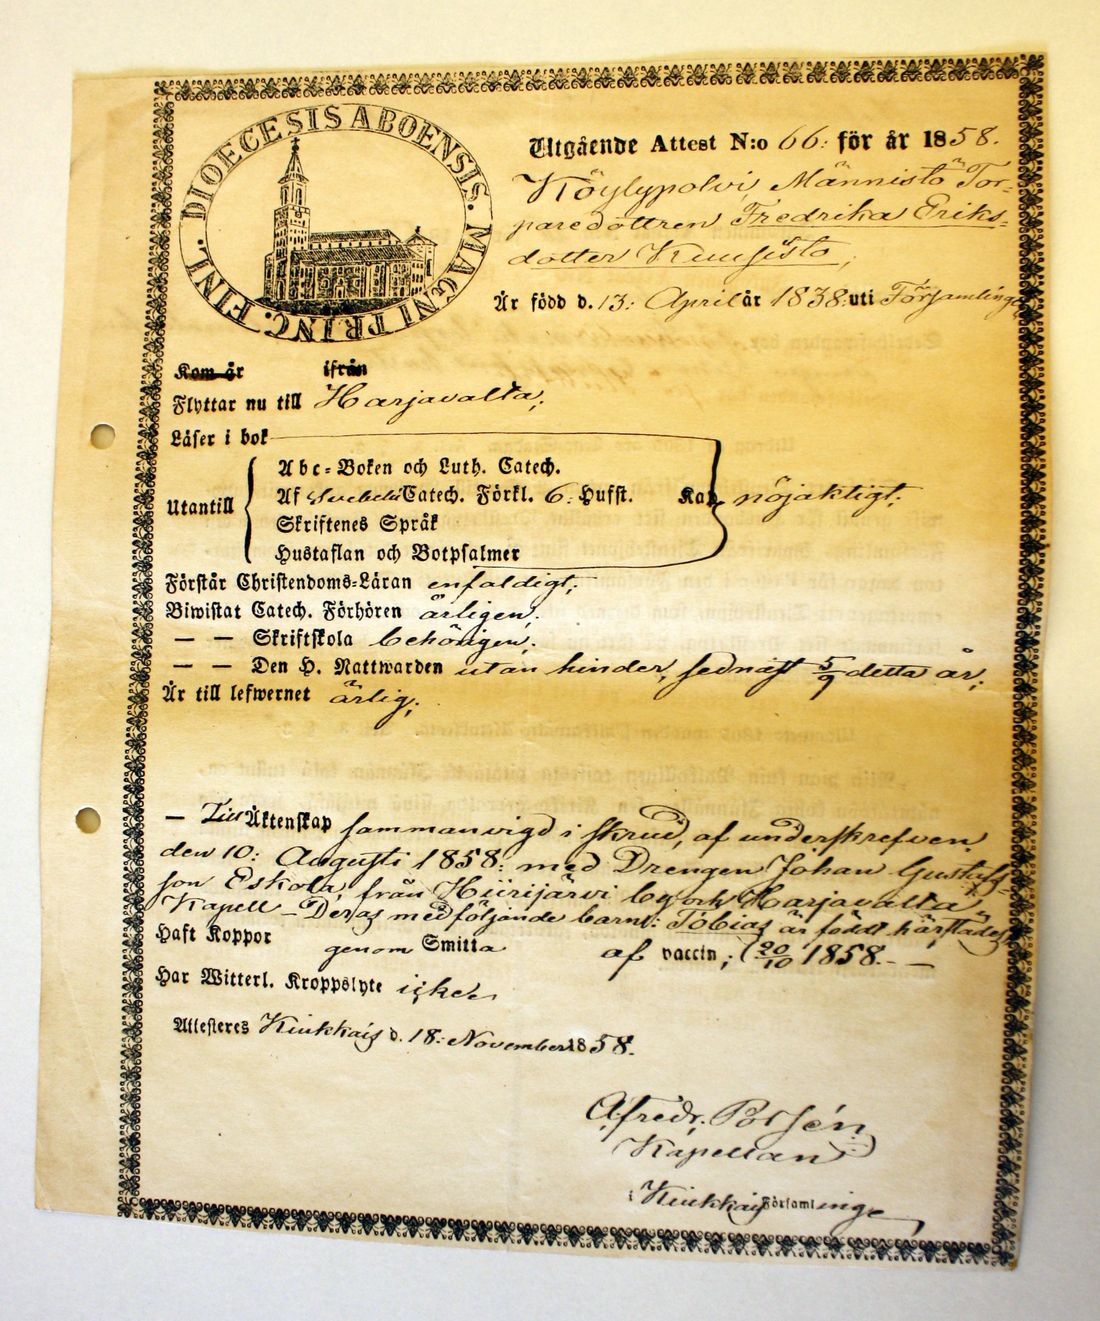 DIOECESIS ABOENSIS. MAGNI PRINC. FINL.
Utgående Attest N:o 66: för år 1858.
Köylypolvi, Männistö Tor-
paredottren Fredrika Eriks-
dotter Kuusisto,
Är född d. 13: April år 1838: uti Församlinge
Kom år ifrån
Flyttar nu till Harjavalta;
Läser i bok
Abc-Boken och Luth. Catech.
Utantill Af Svebelii Catech. Förkl. 6: Hufst. Kap. nöjaktigt.
Skriftenes Språk
Hustaflan och Botpsalmer
Förstår Christendoms-Läran enfaldigt;
Biwistat Catech. Förhören årligen;
— — Skriftskola behörigen;
— — Den H. Nattwarden utan hinder, sednast 5/9 detta år;
Är till lefwernet ärlig;
— Till Äktenskap sammanvigd i skrud, af underskrefven
den 10: Augusti 1858: med Drengen Johan Gustafs-
son Eskola, från Hiirijärvi by och Harjavalta
Kapell — Deras medföljande barn: Tobias är född härstädes
Haft Koppor genom Smitta af vaccin; (20/10 1858. — —
Har Witterl. Kroppslyte icke.
Attesteras Kiukkais d. 18: November 1858.
Alfredr. Polsén
Kapellan
i Kiukkais Församlinge